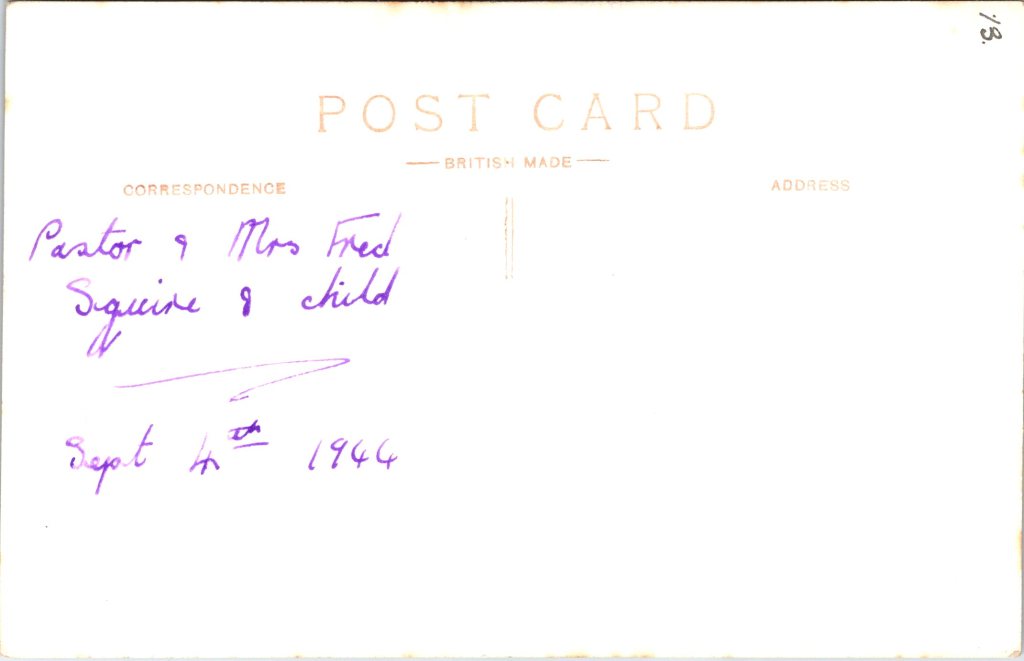 18.
POST CARD
BRITISH MADE
CORRESPONDENCE
ADDRESS
Pastor & Mrs Fred
Squire & child
Sept 4th 1944